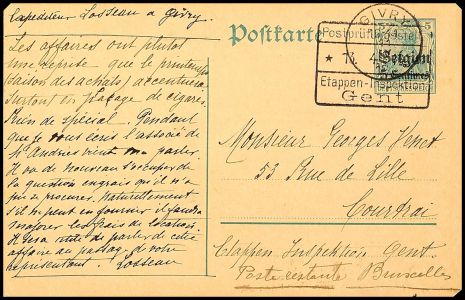 Expéditeur Losseau à Givry.
Les affaires ont plutot
une reprise - que le printemps
(saison des achats) accentuera
surtout et placage de cigares.
Rien de spécial. Pendant
que je vous écris l'associé de
St Andries vient me parler.
Il va de nouveau s'occuper de
la question engrais qu'il n'a
pu se procurer. Naturellement
s'il se peut en fournir il faudra
majorer les frais de location.
Il sera utile de parler de cette
affaire au passage de votre
représentant. Losseau
Postkarte
GIVRY
5
Belgien
5 Centimes
Postprüfungsstelle
Etappen-Inspektion
Gent
Monsieur Georges
53 Rue de Lille
Courtrai
Etappen Inspektion Gent.
Poste restante Bruxelles